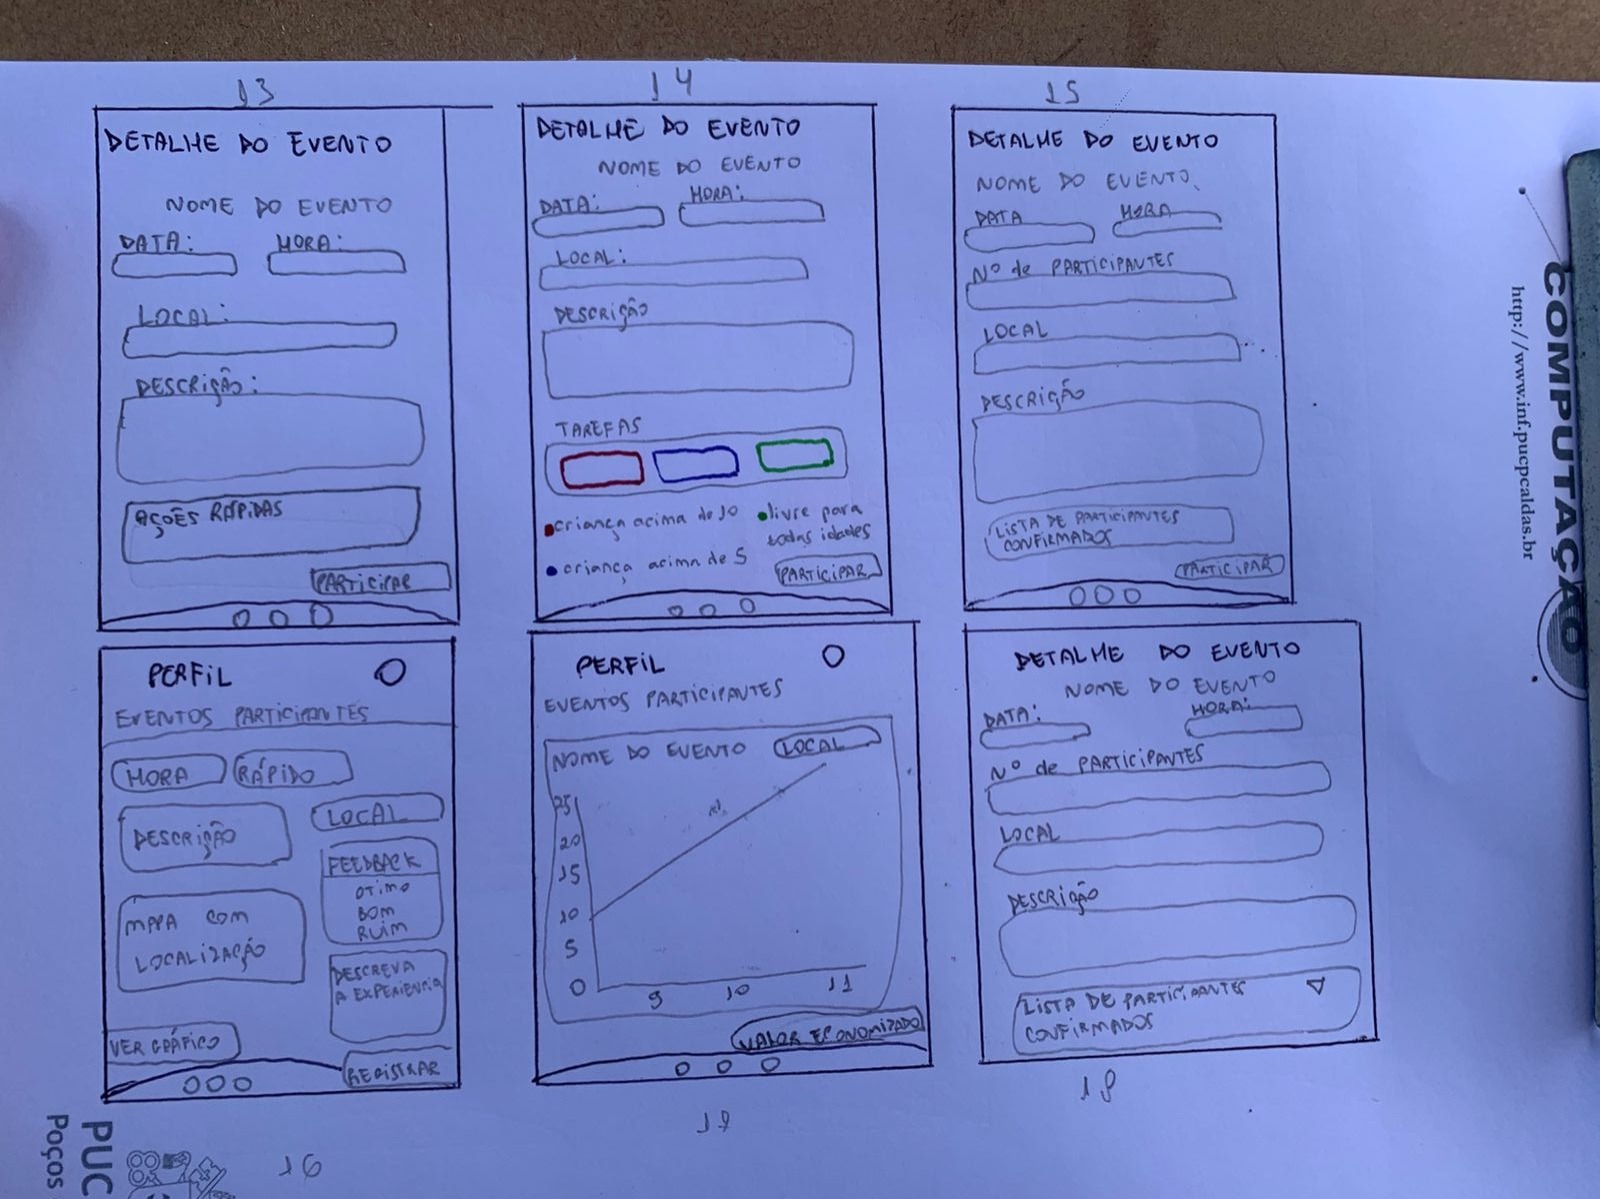 13
DETALHE DO EVENTO
NOME DO EVENTO
DATA:
HORA:
LOCAL:
DESCRIÇÃO:
AÇÕES RÁPIDAS
PARTICIPAR
14
DETALHE DO EVENTO
NOME DO EVENTO
DATA:
HORA:
LOCAL:
DESCRIÇÃO
TAREFAS
criança acima de 10
livre para
todas idades
criança acima de 5
PARTICIPAR
15
DETALHE DO EVENTO
NOME DO EVENTO
DATA
HORA
Nº de PARTICIPANTES
LOCAL
DESCRIÇÃO
LISTA DE PARTICIPANTES
CONFIRMADOS
PARTICIPAR
PERFIL
EVENTOS PARTICIPANTES
HORA
RÁPIDO
DESCRIÇÃO
LOCAL
FEEDBACK
OTIMO
BOM
RUIM
MAPA COM
LOCALIZAÇÃO
DESCREVA
A EXPERIENCIA
VER GRÁFICO
REGISTRAR
16
PERFIL
EVENTOS PARTICIPANTES
NOME DO EVENTO
LOCAL
25
20
15
10
5
0
9
10
11
VALOR ECONOMIZADO
17
DETALHE DO EVENTO
NOME DO EVENTO
DATA:
HORA:
Nº de PARTICIPANTES
LOCAL
DESCRIÇÃO
LISTA DE PARTICIPANTES
CONFIRMADOS
18
COMPUTAÇÃO
http://www.inf.pucpcaldas.br
PUC
Poços